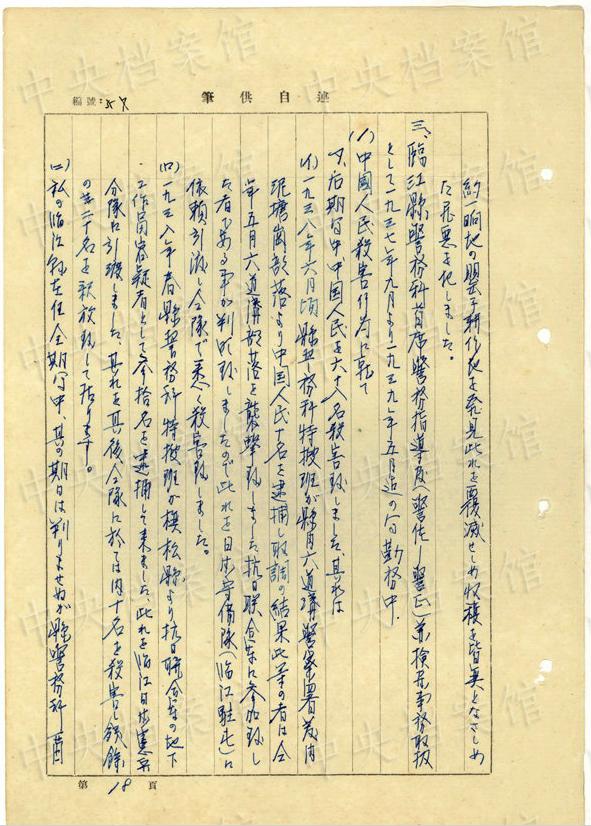 編號：57
筆供自述
約一晌地の罌子耕作地を発見此れを覆滅せしめ収穫を皆無となさしめ
た罪悪を犯しました。
三、臨江縣警務科首席警務指導官（警佐－警正）兼検察事務取扱
として一九三七年九月より一九三九年五月迄の間勤務中、
(1) 中國人民殺害行為に就て
右期間中、中國人民を六十八名殺害致しました、其れは
(イ) 一九三八年六月頃縣警務科特捜班が縣内六道溝警察署管内
塘崗部落より中國人民十名を逮捕し取調の結果此等の者は全
年五月六道溝部落を襲撃致しました抗日聯合軍に参加致し
た者である事が判明致しましたので此れを日本守備隊（臨江駐屯）に
依頼引渡し全隊で悉く殺害致しました。
(ロ) 一九三八年春縣警務科特捜班が樺松縣より抗日聯合軍の地下
工作員容疑者として参拾名を逮捕して来ました、此れを臨江日本憲兵
分隊に引渡しました、其れを其後、全隊に於ては内十名を殺害し残余
の二十名を釈放致して居ります。
(二) 私の臨江縣在任全期間中、其の期日は判りませぬが縣警務科首
第18頁
中央档案馆